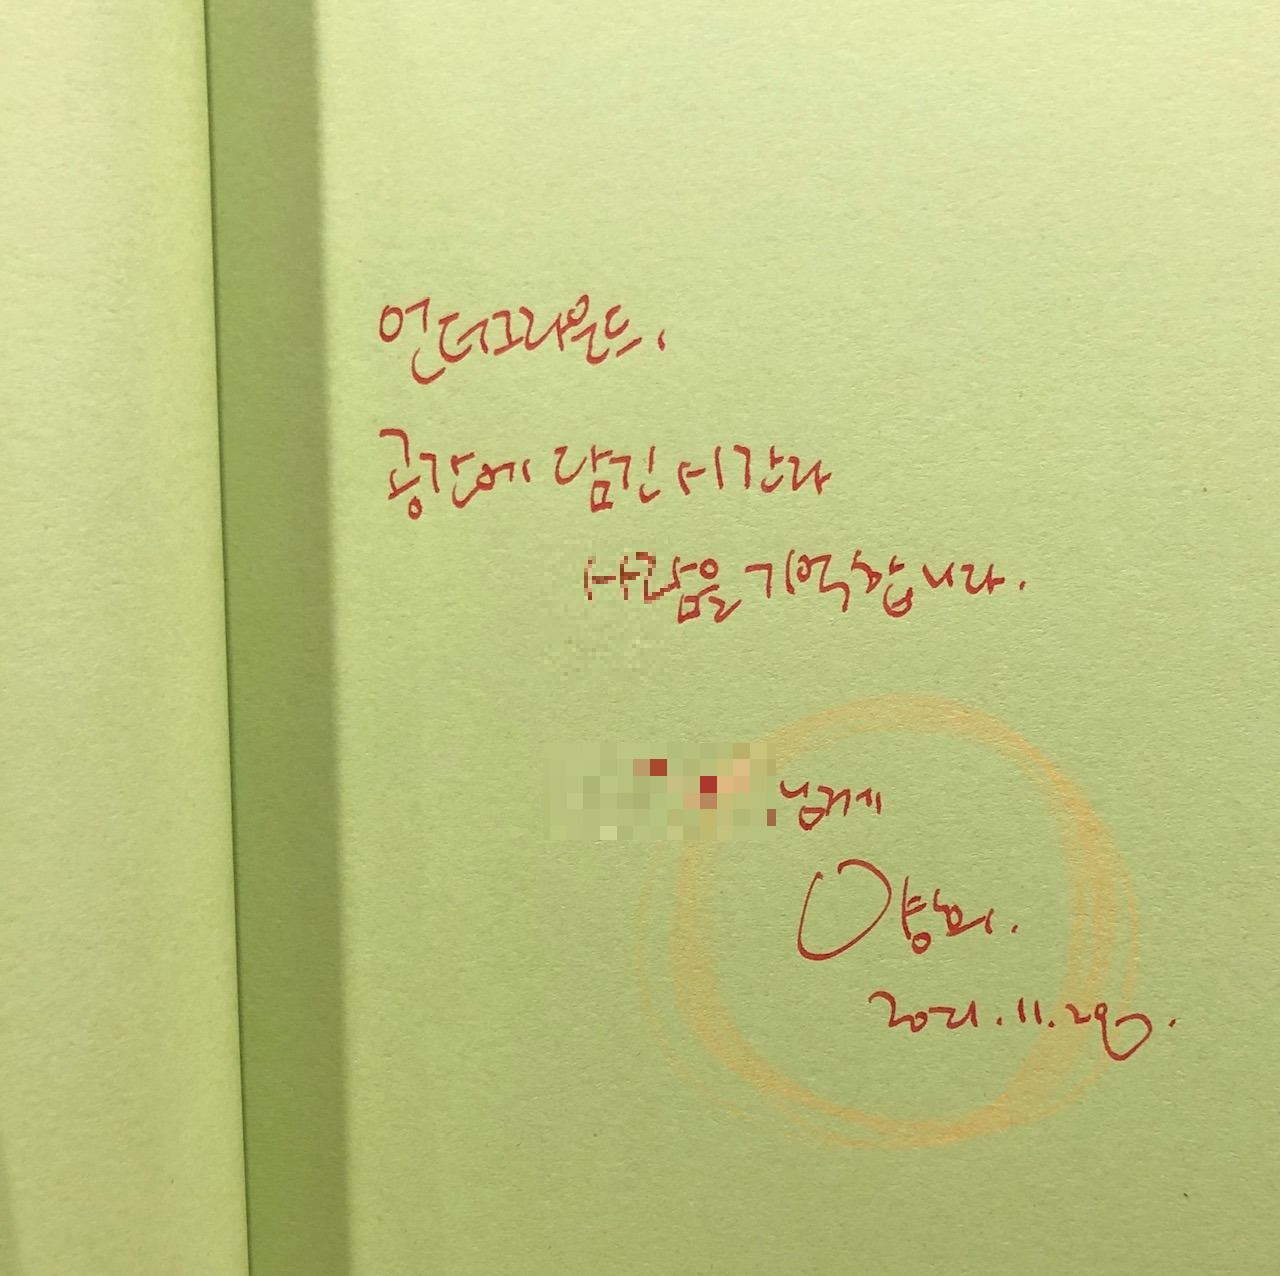 언더그라운드.
공간에 담긴 시간과
사람을 기억합니다.
님께
2021.11.29